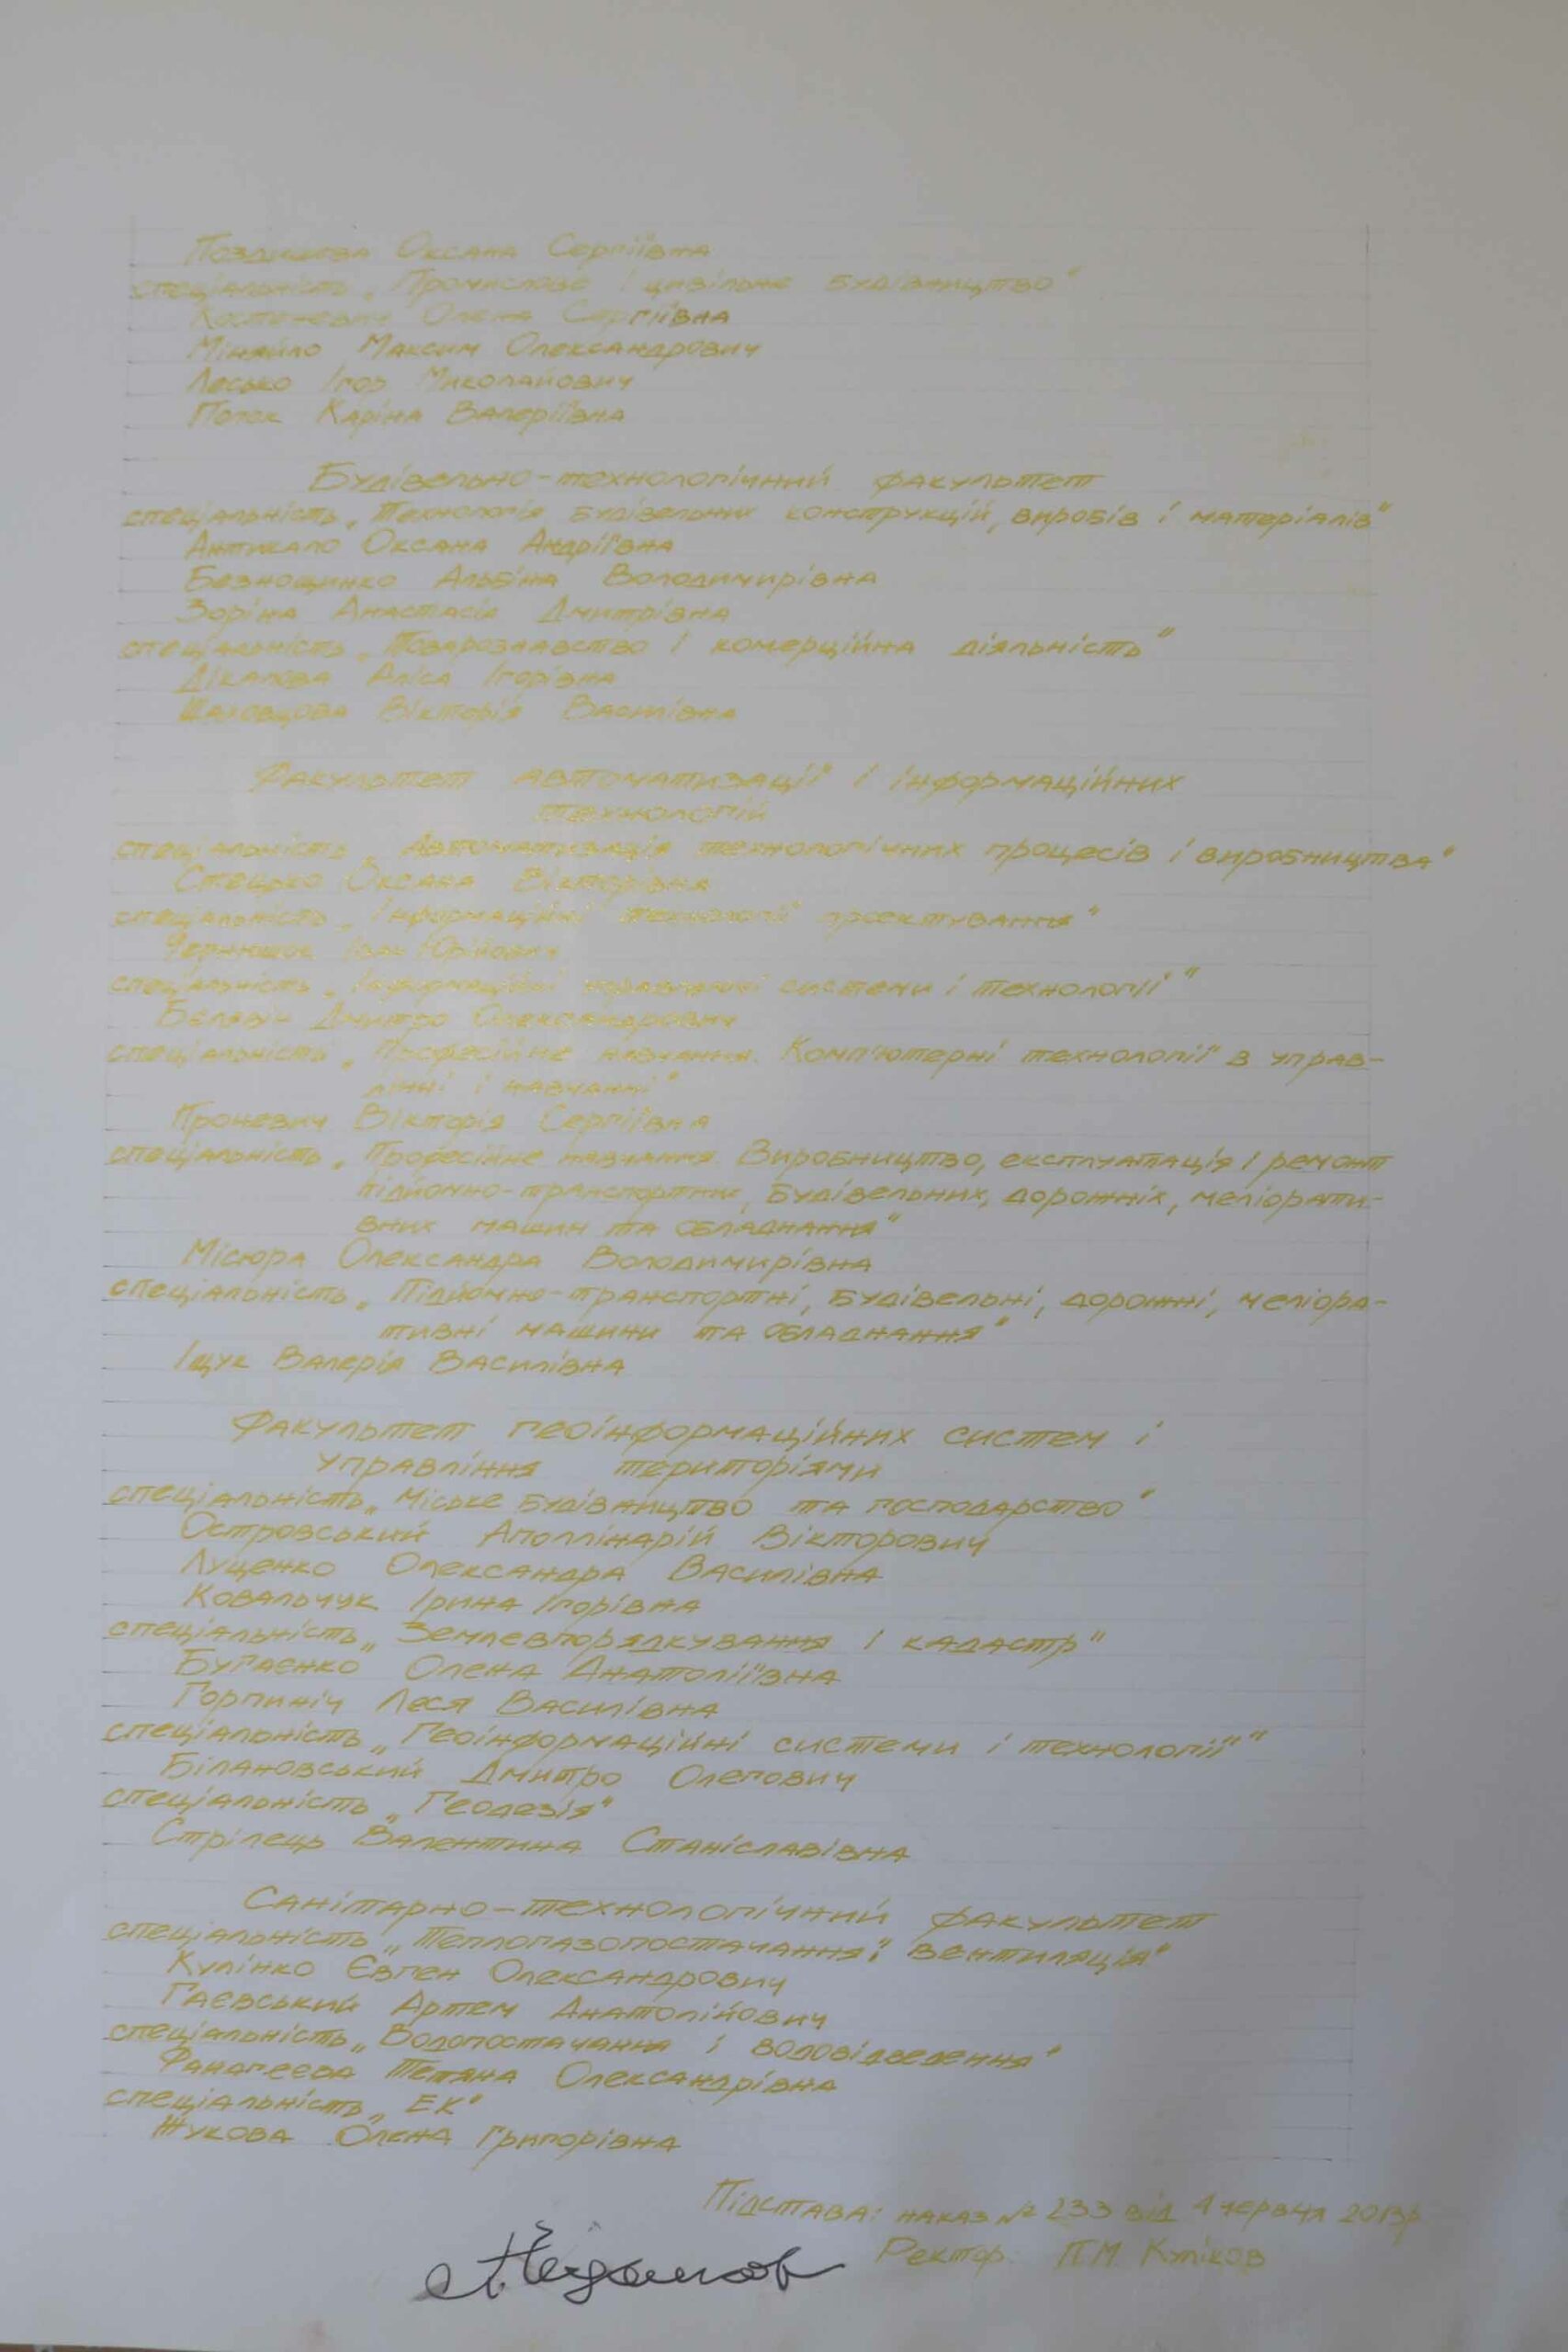 Поздишева Оксана Сергіївна
спеціальність „Промислове і цивільне будівництво"
Костюкевич Олена Сергіївна
Міняйло Максим Олександрович
Лесько Ігор Миколайович
Попок Каріна Валеріївна
Будівельно-технологічний факультет
спеціальність „Технологія будівельних конструкцій, виробів і матеріалів"
Антикало Оксана Андріївна
Безнощинко Альбіна Володимирівна
Зоріна Анастасія Дмитрівна
спеціальність „Товарознавство і комерційна діяльність"
Дікалова Аліса Ігорівна
Шаховцова Вікторія Василівна
Факультет автоматизації і інформаційних
технологій
спеціальність „Автоматизація технологічних процесів і виробництва"
Стецько Оксана Вікторівна
спеціальність „Інформаційні технології проектування"
Чернюшок Іван Юрійович
спеціальність „Інформаційні управляючі системи і технології"
Дмитро Олександрович
спеціальність „Професійне навчання. Комп'ютерні технології в управ-
лінні і навчанні"
Проневич Вікторія Сергіївна
спеціальність „Професійне навчання. Виробництво, експлуатація і ремонт
підйомно-транспортних, будівельних, дорожніх, меліорати-
вних машин та обладнання"
Місюра Олександра Володимирівна
спеціальність „Підйомно-транспортні, будівельні, дорожні, меліора-
тивні машини та обладнання"
Іщук Валерія Василівна
Факультет геоінформаційних систем і
управління територіями
спеціальність „Міське будівництво та господарство"
Островський Аполлінарій Вікторович
Луценко Олександра Василівна
Ковальчук Ірина Ігорівна
спеціальність „Землевпорядкування і кадастр"
Бугаєнко Олена Анатоліївна
Горпиніч Леся Василівна
спеціальність „Геоінформаційні системи і технології"
Білановський Дмитро Олегович
спеціальність „Геодезія"
Стрілець Валентина Станіславівна
Санітарно-технологічний факультет
спеціальність „Теплогазопостачання і вентиляція"
Кулінко Євген Олександрович
Гаєвський Артем Анатолійович
спеціальність „Водопостачання і водовідведення"
Фанагеєва Тетяна Олександрівна
спеціальність „ЕК"
Жукова Олена Григорівна
Підстава: наказ № 233 від 4 червня 2013р
Ректор: П.М. Куліков